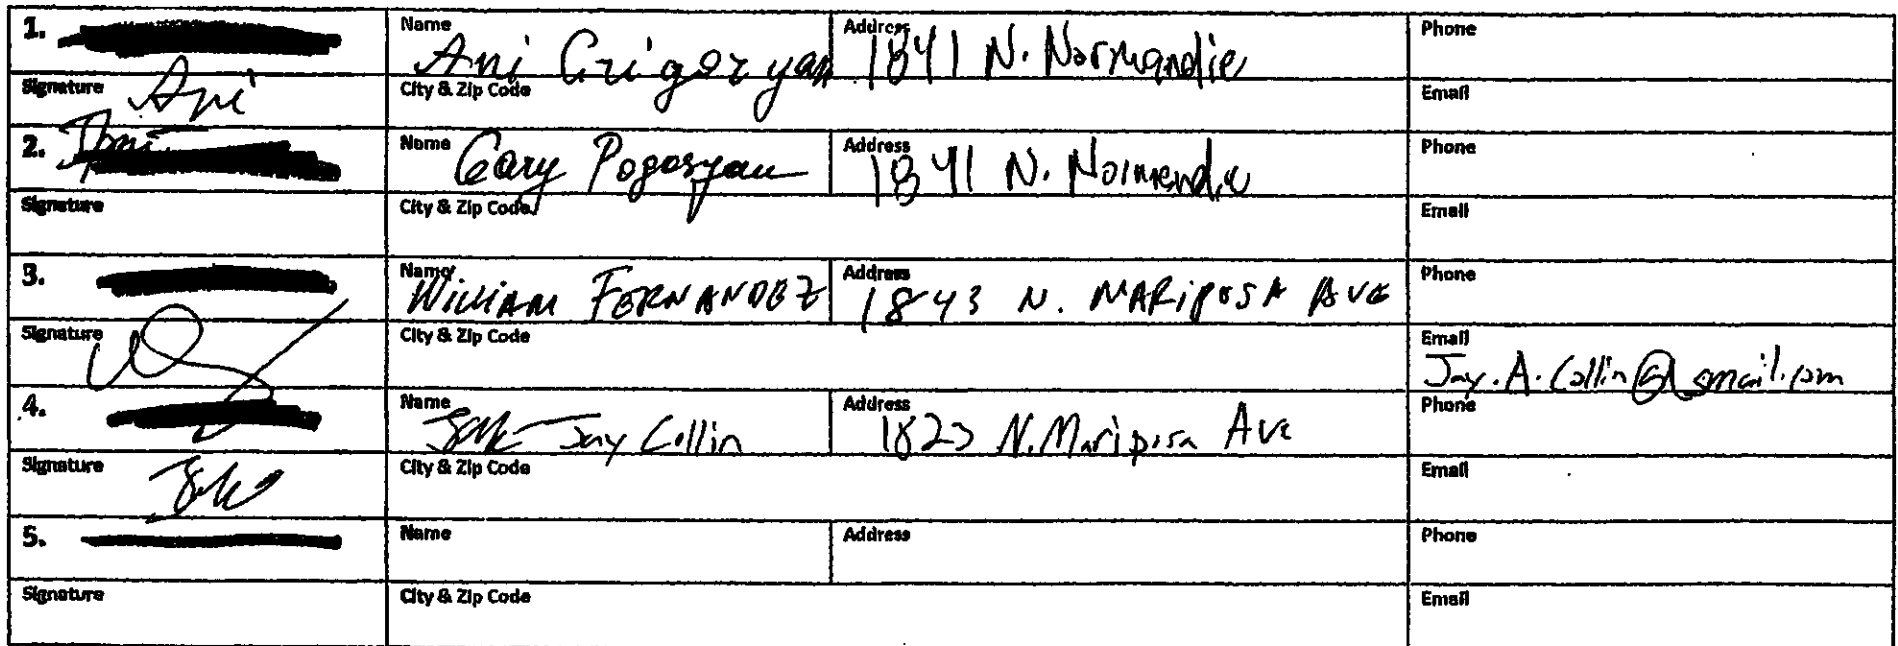 1. Name Ani Grigoryan Address 1841 N. Normandie Phone
Signature Ani City & Zip Code Email
2. Name Gary Pogosyan Address 1841 N. Normandie Phone
Signature City & Zip Code Email
3. Name WILLIAM FERNANDEZ Address 1843 N. MARIPOSA AVE Phone
Signature City & Zip Code Email Jay.A.Collin@gmail.com
4. Name Jay Collin Address 1823 N. Mariposa Ave Phone
Signature City & Zip Code Email
5. Name Address Phone
Signature City & Zip Code Email